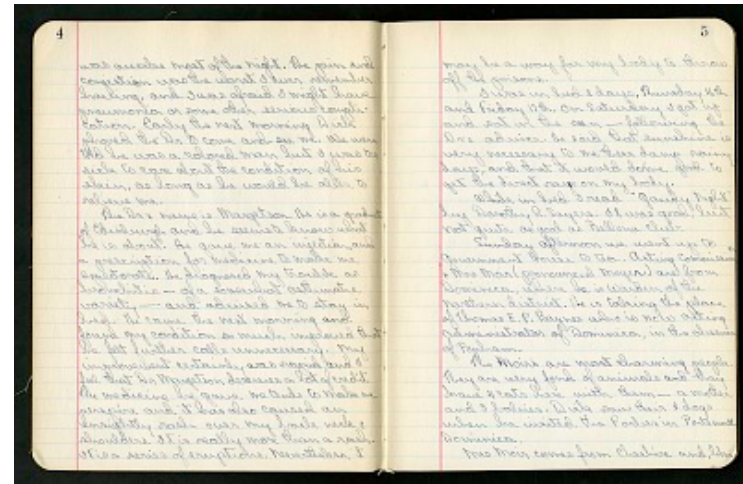 4
was awake most of the night. The pain and
congestion was the worst I ever remember
having, and I was afraid I might have
pneumonia or some other serious
Early the next morning Dick
phoned the Dr. to come and see me.
he was a colored man but I was too
sick to care about the condition of his
skin, as long as he would be able to
relieve me.
The Drs name is He is a graduate
of Edinburg and he seems to know what
he is about. He gave me an and
a prescription for medicine to make me
He diagnosed my trouble as
of a somewhat asthmatic
variety — and advised me to stay in
bed. He came the next morning and
found my condition so much improved that
he felt further calls unnecessary. My
improvement certainly was rapid and I
feel that Dr. deserves a lot of credit.
The medicine he gave me to make me
perspire and, it has also caused an
unsightly rash over my neck,
shoulders. It is really more than a rash.
It is a series of eruptions. Nevertheless I
5
may be a way for my body to throw
off the poisons.
I was in bed 2 days, Thursday
and Friday On Saturday I got up
and sat in the sun — following the
Drs advice. He said that sunshine is
very necessary to me these damp rainy
days and that it would do me good to
get the direct rays on my body.
While in bed I read Gaudy Night
by Dorothy L. Sayers. It was good, but
not quite as good as Bellona Club.
Sunday afternoon we went up to
Government House to tea. Acting Commissioner
& Mrs (pronounced ) are from
Dominica, where he is warden of the
northern district. He is taking the place
of Thomas E.P. Baynes who is now acting
administrator of Dominica, in the absence
of
The are most charming people.
They are very fond of animals and they
have 3 cats here with them — a mother
and 2 babies. Dick saw their 2 dogs
when he visited the in Portsmouth
Dominica.
Mrs comes from Cheshire and